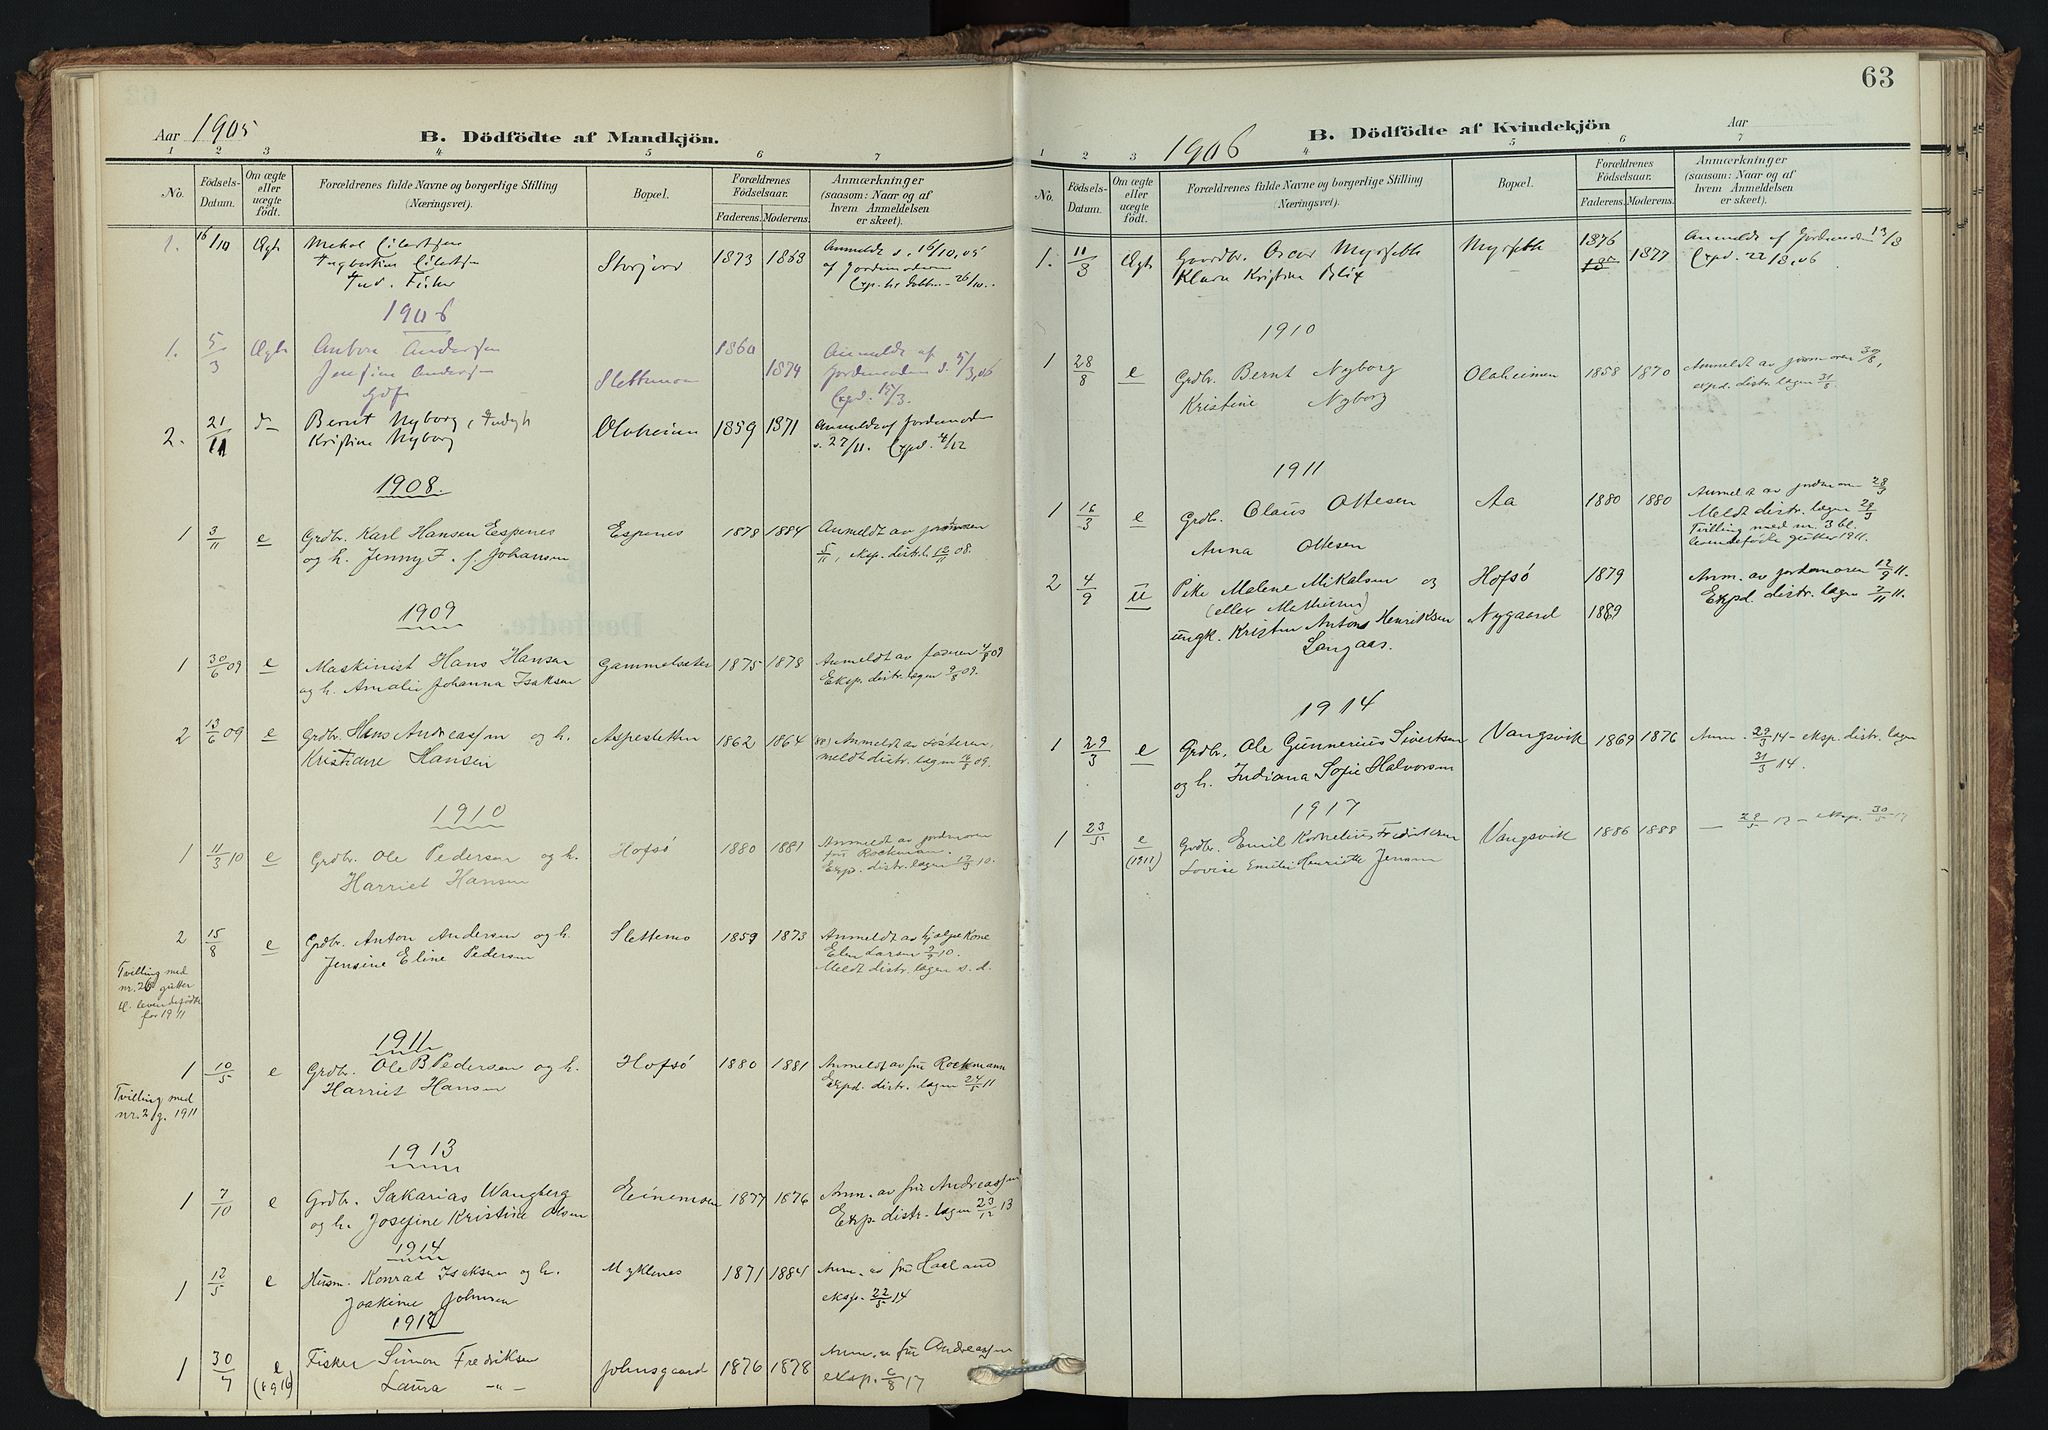 Aar 1905
B. Dödfödte af Mandkjön.
1 2 3 4 5 6 7
No.
Födsels-
Datum.
Om ægte
eller
uægte
födt.
Forældrenes fulde Navne og borgerlige Stilling
(Næringsvei).
Bopæl.
Forældrenes
Födselsaar.
Faderens. Moderens.
Anmærkninger
(saasom: Naar og af
hvem Anmeldelsen
er skeet).
1. 16/10 Ægte Storjord 1873 1868 Anmeldt d. 16/10.05
af Jordemoderen
26/10.
1906
1. 5/3 Ægte Anton Andersen 1860
Jensine Andersen Slettmoen 1874
Anmeldt af
Jordemoderen d. 5/3.06
Expd. 15/3.
2. 21/11 Bernt Nyborg, Olaheimen 1859 1871
Kristine Nyborg
Anmeldt af Jordemoderen
d. 27/11. Expd. 4/12
1908.
1 3/11 e Grdbr. Karl Hansen Espenes Espenes 1878 1884
og h. Jenny F. f. Johansen
Anmeldt av
5/11, eksp. distr.l. 12/11 08.
1909
1 30/6 09 e Maskinist Hans Hansen Gammelsæter 1875 1878
og h. Amalie Johanna Isaksen
Anmeldt av faderen
Eksp. distr. lægen 9/8 09.
2 13/6 09 e Grdbr. Hans Andreassen og h. Aspesletten 1862 1864
Kristiane Hansen
Anmeldt av søsteren,
meldt distr. lægen
1910
1 11/3 10 e Grdbr. Ole Pedersen og h. Hofsö 1880 1881
Harriet Hansen
Anmeldt av jordmoren
fru Rockmann.
Eksp. distr. lægen 17/3 10.
2 15/8 e Grdbr. Anton Andersen og h. Slettemo 1859 1873
Jensine Eline Pedersen
Anmeldt av hjælpekone
Elen Larsen
Meldt distr. lægen s. d.
Tvilling med
nr. 26 gutter
bl. levendefødte
for 1911
1911
1 10/5 e Grdbr. Ole B Pedersen og h. Hofsö 1880 1881
Harriet Hansen
Anmeldt av fru Rockmann
Expd. distr. lægen 24/5 11
Tvilling med
nr. 2 g. 1911
1913
1 7/10 e Grdbr. Sakarias Wangberg 1877 1876
og h. Josefine Kristine Olsen
Anm. av fru Andreassen
Eksp. distr. lægen 23/12 13
1914
1 12/5 e Husm. Konrad Isaksen og h. Myklenes 1871 1884
Joakime Johnsen
Anm. av fru Haaland
eksp. 22/5 14
1917
1 30/7 e Fisker Simon Fredriksen Johnsgaard 1876 1878
Laura -"-
Anm. av fru Andreassen
eksp. 6/8 17
63
B. Dödfödte af Kvindekjön
Aar
1906
1 2 3 4 5 6 7
No.
Födsels-
Datum.
Om ægte
eller
uægte
födt.
Forældrenes fulde Navne og borgerlige Stilling
(Næringsvei).
Bopæl.
Forældrenes
Födselsaar.
Faderens. Moderens.
Anmærkninger
(saasom: Naar og af
hvem Anmeldelsen
er skeet).
1. 11/8 Ægte Gaardbr. Oscar Myrseth Myrseth 1876 1877
Klara Kristine Blix
Anmeldt af Jordemoderen 13/8
Expd. 22/8.06
1910
1 28/8 e Grdbr. Bernt Nyborg Olaheimen 1858 1870
Kristine Nyborg
Anmeldt av jormoren 30/8,
expd. distr. lægen 31/8.
1911
1 16/3 e Grdbr. Olaus Ottesen Aa 1880 1880
Anna Ottesen
Anmeldt av jordmoren 28/3
Meldt distr. lægen 29/3
Tvilling med nr. 3 bl.
levendefødte gutter 1911.
2 4/9 u Pike Malene Mikalsen og Hofsö 1879
(eller Mathisen)
ungk. Kristen Anton Henriksen Nygaard 1889
Langaas.
Anm. av jordemoren 12/9 11.
Expd. distr. lægen 7/11 11.
1914
1 29/3 e Grdbr. Ole Gunnerius Sivertsen Vangsvik 1869 1876
og h. Indiana Sofie Halvorsen
Anm. 29/3 14 - eksp. distr. lægen
31/3 14.
1917
1 23/5 e (1911) Grdbr. Emil Kornelius Fredriksen Vangsvik 1886 1888
Lovise Emilie Henriette Jensen
— 29/5 17 - eksp. 30/5 17